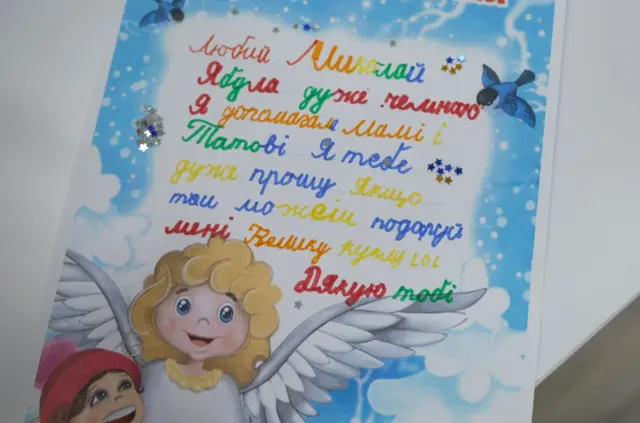 Любий Миколай
Я була дуже чемною
Я допомагам мамі і
Татові Я тебе
дуже прошу Якщо
ти можеш подаруй
мені Велику куклу LOL
Дякую тобі